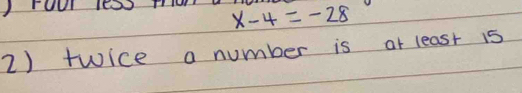 ) Four less than a
x-4 = -28
2) twice a number is at least 15